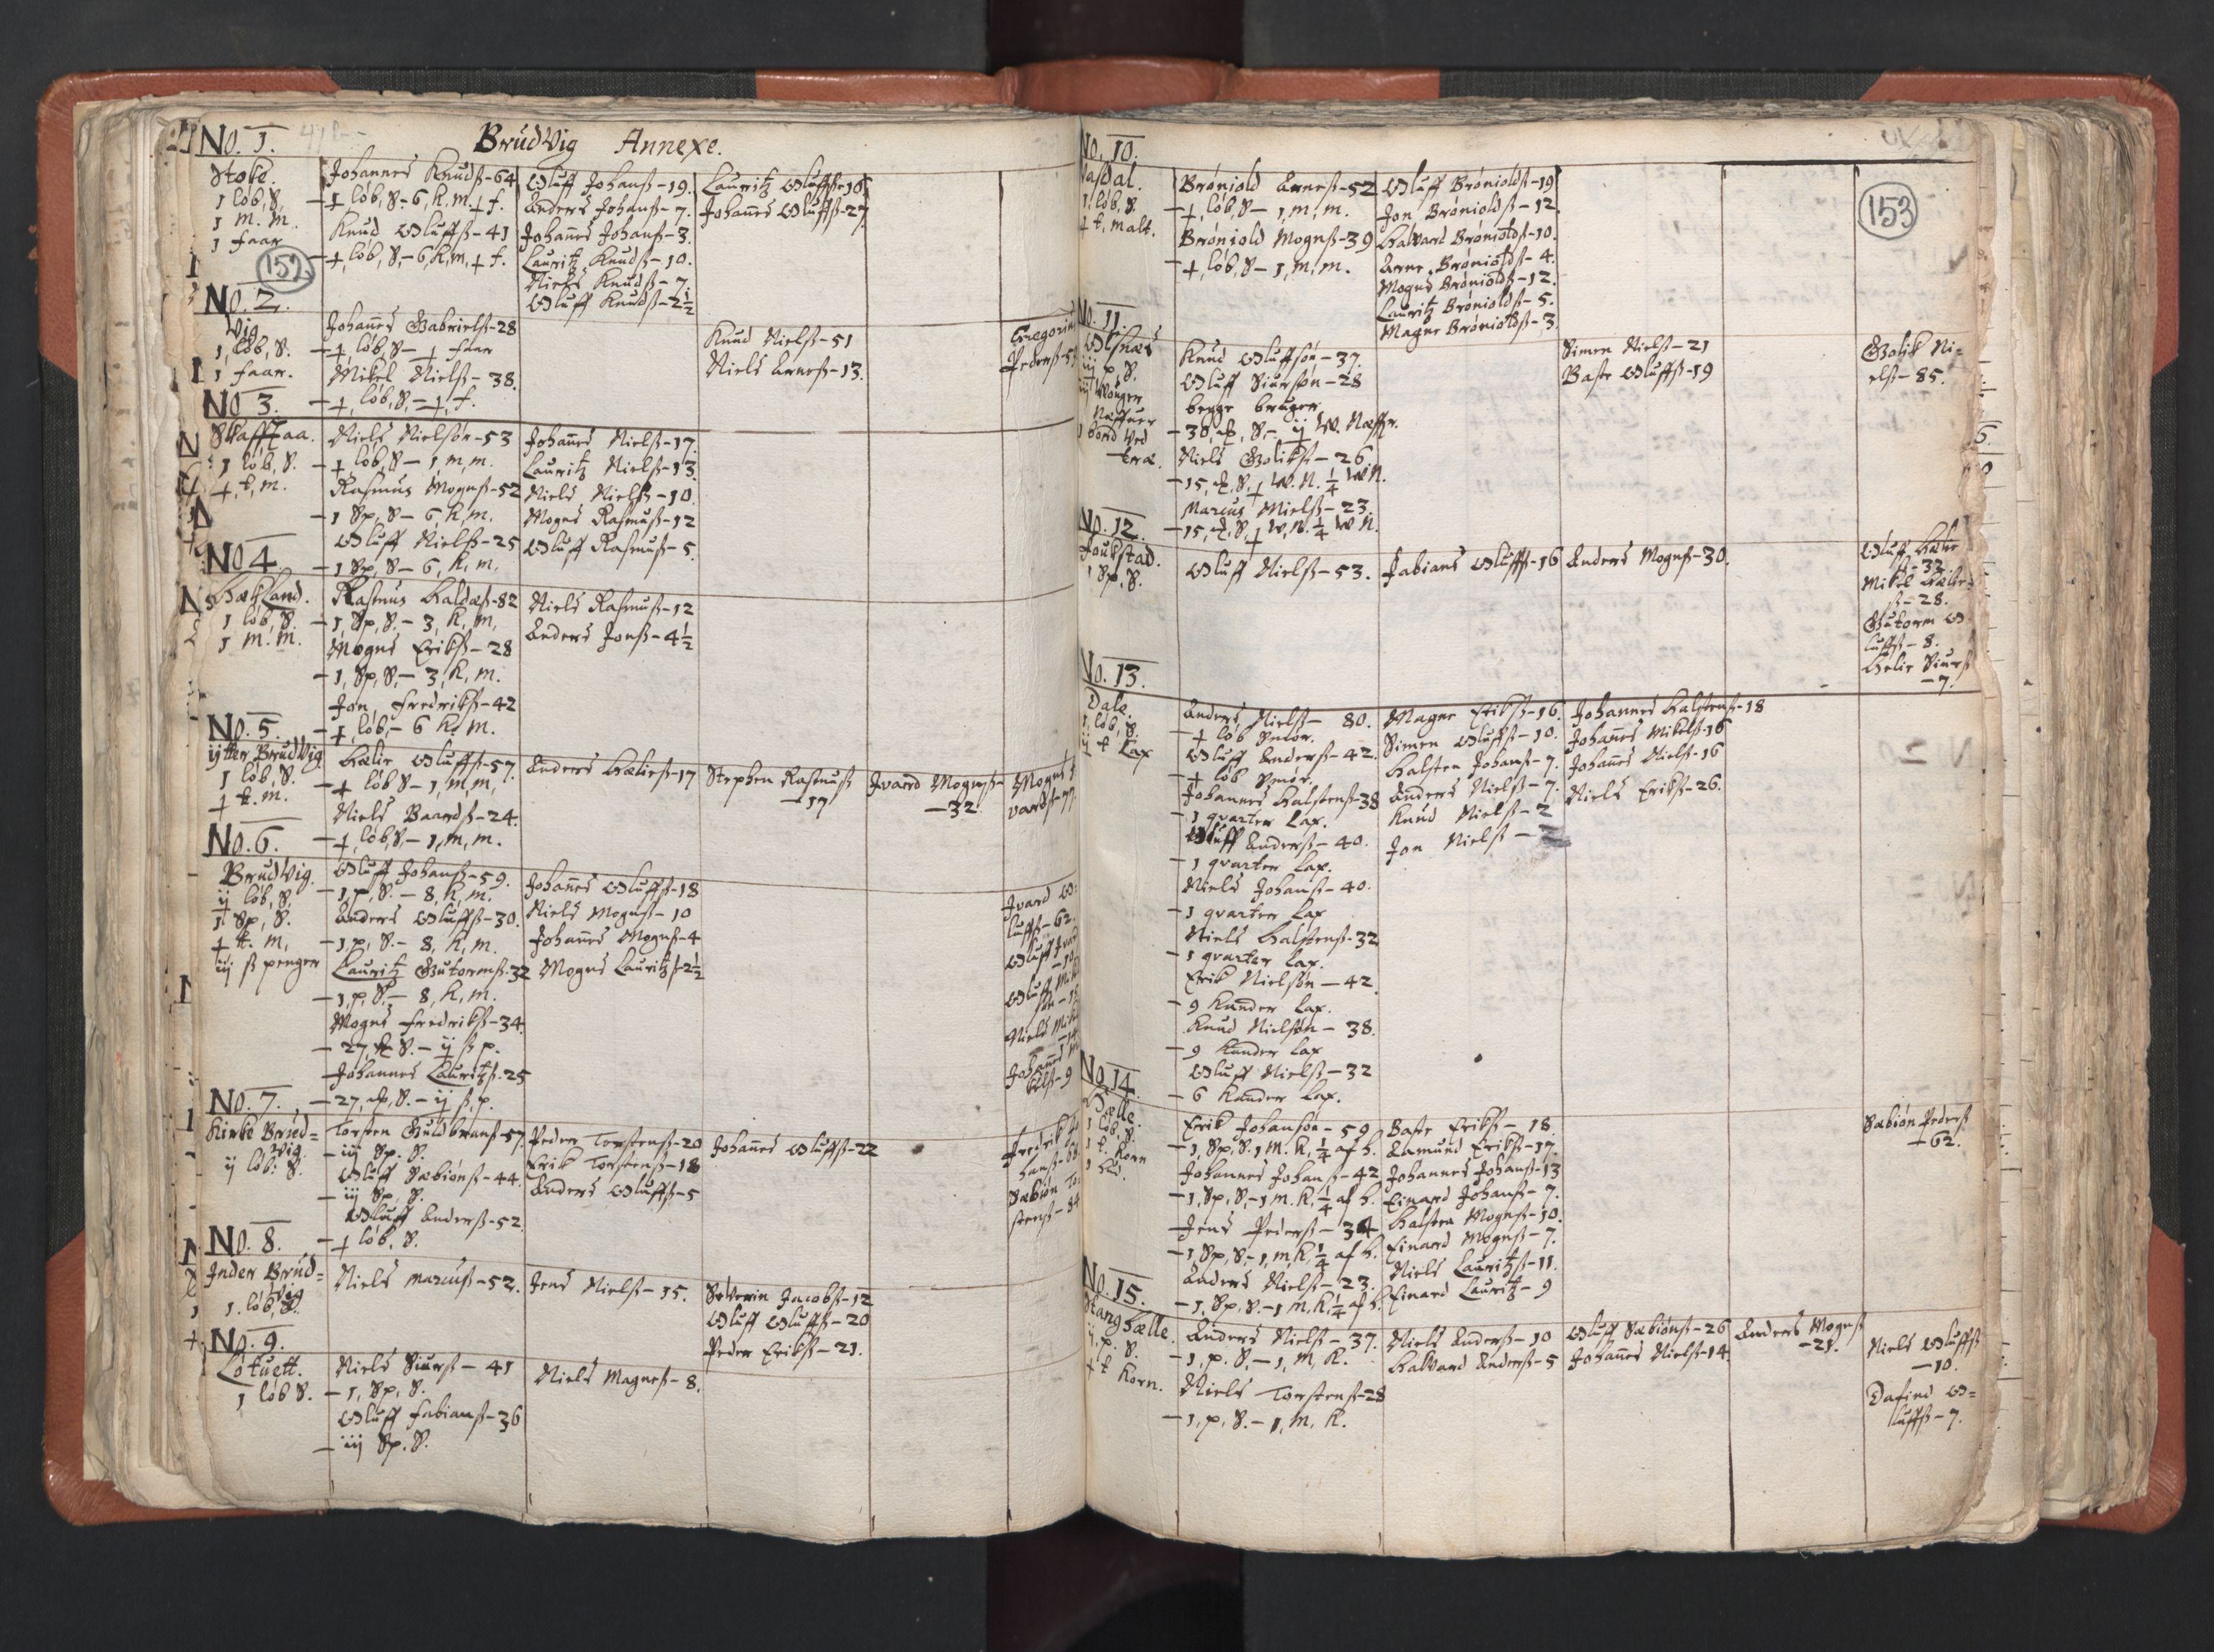 No. 1.
Brudvig Annexe.
Støke.
1 løb, S.
1 m. M.
1 faar
152.
Johannes Knudß-64
- ½ løb, S-6, K, m. ½ f.
Knud Oluffß-41
- ½ løb, S-6, K, m, ½ f.
Oluff Johanß-19.
Anders Johanß-7.
Johañes Johanß-3.
Lauritz Knudß-10.
Niels Knudß-7.
Oluff Knudß-2½
Lauritz Oluffß-16
Johañes Oluffß-27
No. 2.
Vig
1, løb, S.
1 faar.
Johañes Gabrielß-28
- ½ løb, S- ½ faar
Mikel Nielß-38.
- ½, løb, S,- ½, f.
Knud Nielß-51
Niels Arneß-13.
Gregorius
Pederß-
No 3.
Skafftaa.
1 løb, S.
½, t, m.
Niels Nielsøn-53
- ½ løb, S- 1, m, m.
Rasmus Mognß-52
- 1 Sp, S- 6, K, m.
Oluff Nielß-25
- 1 Sp, S- 6, K, m.
Johañes Nielß-17.
Lauritz Nielß-13
Niels Nielß-10.
Mogns Rasmuß-12
Oluff Rasmuß-5.
No 4.
Hækland.
1 løb, S.
1 m. m.
Rasmus Haldaß-82
- 1, Sp, S.- 3, K, m,
Mogns Erikß-28
- 1, Sp, S,- 3, K, m.
Jon Fredrikß-42
- ½, løb,- 6 K, m.
Niels Rasmuß-12
Anders Jonß-4½
No. 5.
ijtter Brudvig
1 løb, S.
½ t. m.
Hælie Oluffß-57.
- ½ løb S- 1, m, m,
Niels Baardß-24.
- ½, løb, S,- 1, m, m.
Anders Hæließ-17
Stephen Rasmuß
-17
Ivard Mognß-
-32.
Mogns I
vardß-77
No. 6.
Brudvig.
ij løb, S.
1. Sp, S.
½ t. m,
iij ß penger
Oluff Johanß-59.
- 1, p, S.- 8, K, m.
Anders Oluffß-30.
- 1, p, S.- 8, K, m.
Lauritz Gutormß-32
- 1, p, S.- 8, K, m.
Mogns Fredrikß-34.
- 27, S.- ij ß p.
Johannes Lauritzß-25
- 27, S.- ij ß, p.
Johañes Oluffß-18
Niels Mognß-10
Johañes Mognß-4
Mogns Lauritzß-2½
Ivard O-
luffß-62.
Oluff Ivard
-10
Oluff Mik
Niels Mik
Johañes
kelß-9
No. 7.
Kirke Brud=
vig.
ij løb: S.
Torsten Guldbranß-57
- iij Sp. S.
Oluff Sæbiønß-44.
- iij Sp, S.
Oluff Anderß-52.
- ½ løb, S.
Peder Torstenß-20
Erik Torstenß-18
Anders Oluffß-5
Johañes Oluffß-22
Fredrik Jo
hanß-
Sæbiøn To
stenß-84
No. 8.
Inder Brud=
vig
1. løb, S.
Niels Marcuß-52.
Jens Nielß-15.
Severin Jacobß-12
Oluff Oluffß-20
Peder Erikß-21.
No. 9.
Løtuett.
1 løb S.
Niels Siurß-41
- 1, Sp, S.
Oluff Fabianß-36
- iij Sp. S.
Niels Magneß-8.
No. 10.
Vasdal.
1, løb, S.
½ t, malt.
Brøniold Arneß-52
- ½, løb, S- 1, m, m.
Brøniold Mognß-39
- ½, løb, S- 1, m, m.
Oluff Brønioldß-19
Jon Brønioldß-12
Halvard Brønioldß-10.
Arne Brønioldß-4.
Mogns Brønioldß-12.
Lauritz Brønioldß-5.
Magne Brønioldß-3.
153
No. 11.
Olsnæs
iij p. S.
ij Woger
Næffuer
1 bord ved
-træ.
Knud Oluffsøn-37.
Oluff Siursøn-28
begge bruger
- 36, S.- ij W. Næffr.
Niels Golikß-26
- 15, S. ½ W. N. ¼ W N.
Marcus Nielß-23.
- 15, S, ½ W, N. ¼ W N.
Simen Nielß-21
Baste Oluffß-19
Golik Ni=
elß-85.
No. 12.
Foukstad.
1 Sp, S.
Oluff Nielß-53.
Fabians Oluffß-16
Anders Mognß-30.
Oluff Hælie
ß-32.
Mikel Hælie=
ß-28.
Gutorm O
luffß-8.
Helie Siurß
-7.
No. 13.
Dale.
1, løb, S.
ij t Lax
Anders Nielß- 80.
- ½ løb Smør.
Oluff Anderß-42.
- ½ løb Smør.
Johannes Halstenß-38
- 1 qvarter Lax.
Oluff Anderß-40.
- 1 qvarter Lax.
Niels Johanß-40.
- 1 qvarter Lax
Niels Halstenß-32
- 1 qvarter Lax.
Erik Nielsøn-42.
- 9 Kander Lax.
Knud Nielsøn- 38.
- 9 Kander Lax
Oluff Nielß-32
- 6 Kander Lax.
Magne Erikß-16.
Simen Oluffß-10.
Halsten Johanß-7.
Anders Nielß-7.
Knud Nielß-2
Jon Nielß-
Johannes Halstenß-18
Johañes Mikelß-16
Johañes Nielß-16
Niels Erikß-26.
No. 14.
Hælle.
1 løb, S.
1 t. Korn
1 hud.
Erik Johansøn-59
- 1, Sp, S. 1 m. K, ¼ af h.
Johannes Johanß-42
- 1, Sp, S,- 1 m. K, ¼ af h.
Jens Pederß-34
- 1, Sp, S.- 1, m, K, ¼ af h.
Anders Nielß-23.
- 1, Sp, S.- 1 m, K, ¼ af h.
Baste Erikß-18.
Aamund Erikß-17.
Johannes Johanß-13
Einard Johanß-7.
Halsten Mognß-10.
Einard Mognß-7.
Niels Lauritzß-11.
Einard Lauritz-9
Sæbiøn Pederß
-62.
No. 15.
Stanghælle.
ij, p. S.
½ t Korn.
Anders Nielß-37.
- 1, p. S,- 1, m, K.
Niels Torstenß-28
- 1, p, S.- 1, m, K.
Niels Anderß-10
Halvard Anderß-5
Oluff Sæbiønß-26
Johañes Nielß-14.
Anders Mognß
-21.
Niels Oluffß
-10.
Dafind O=
luffß-7.